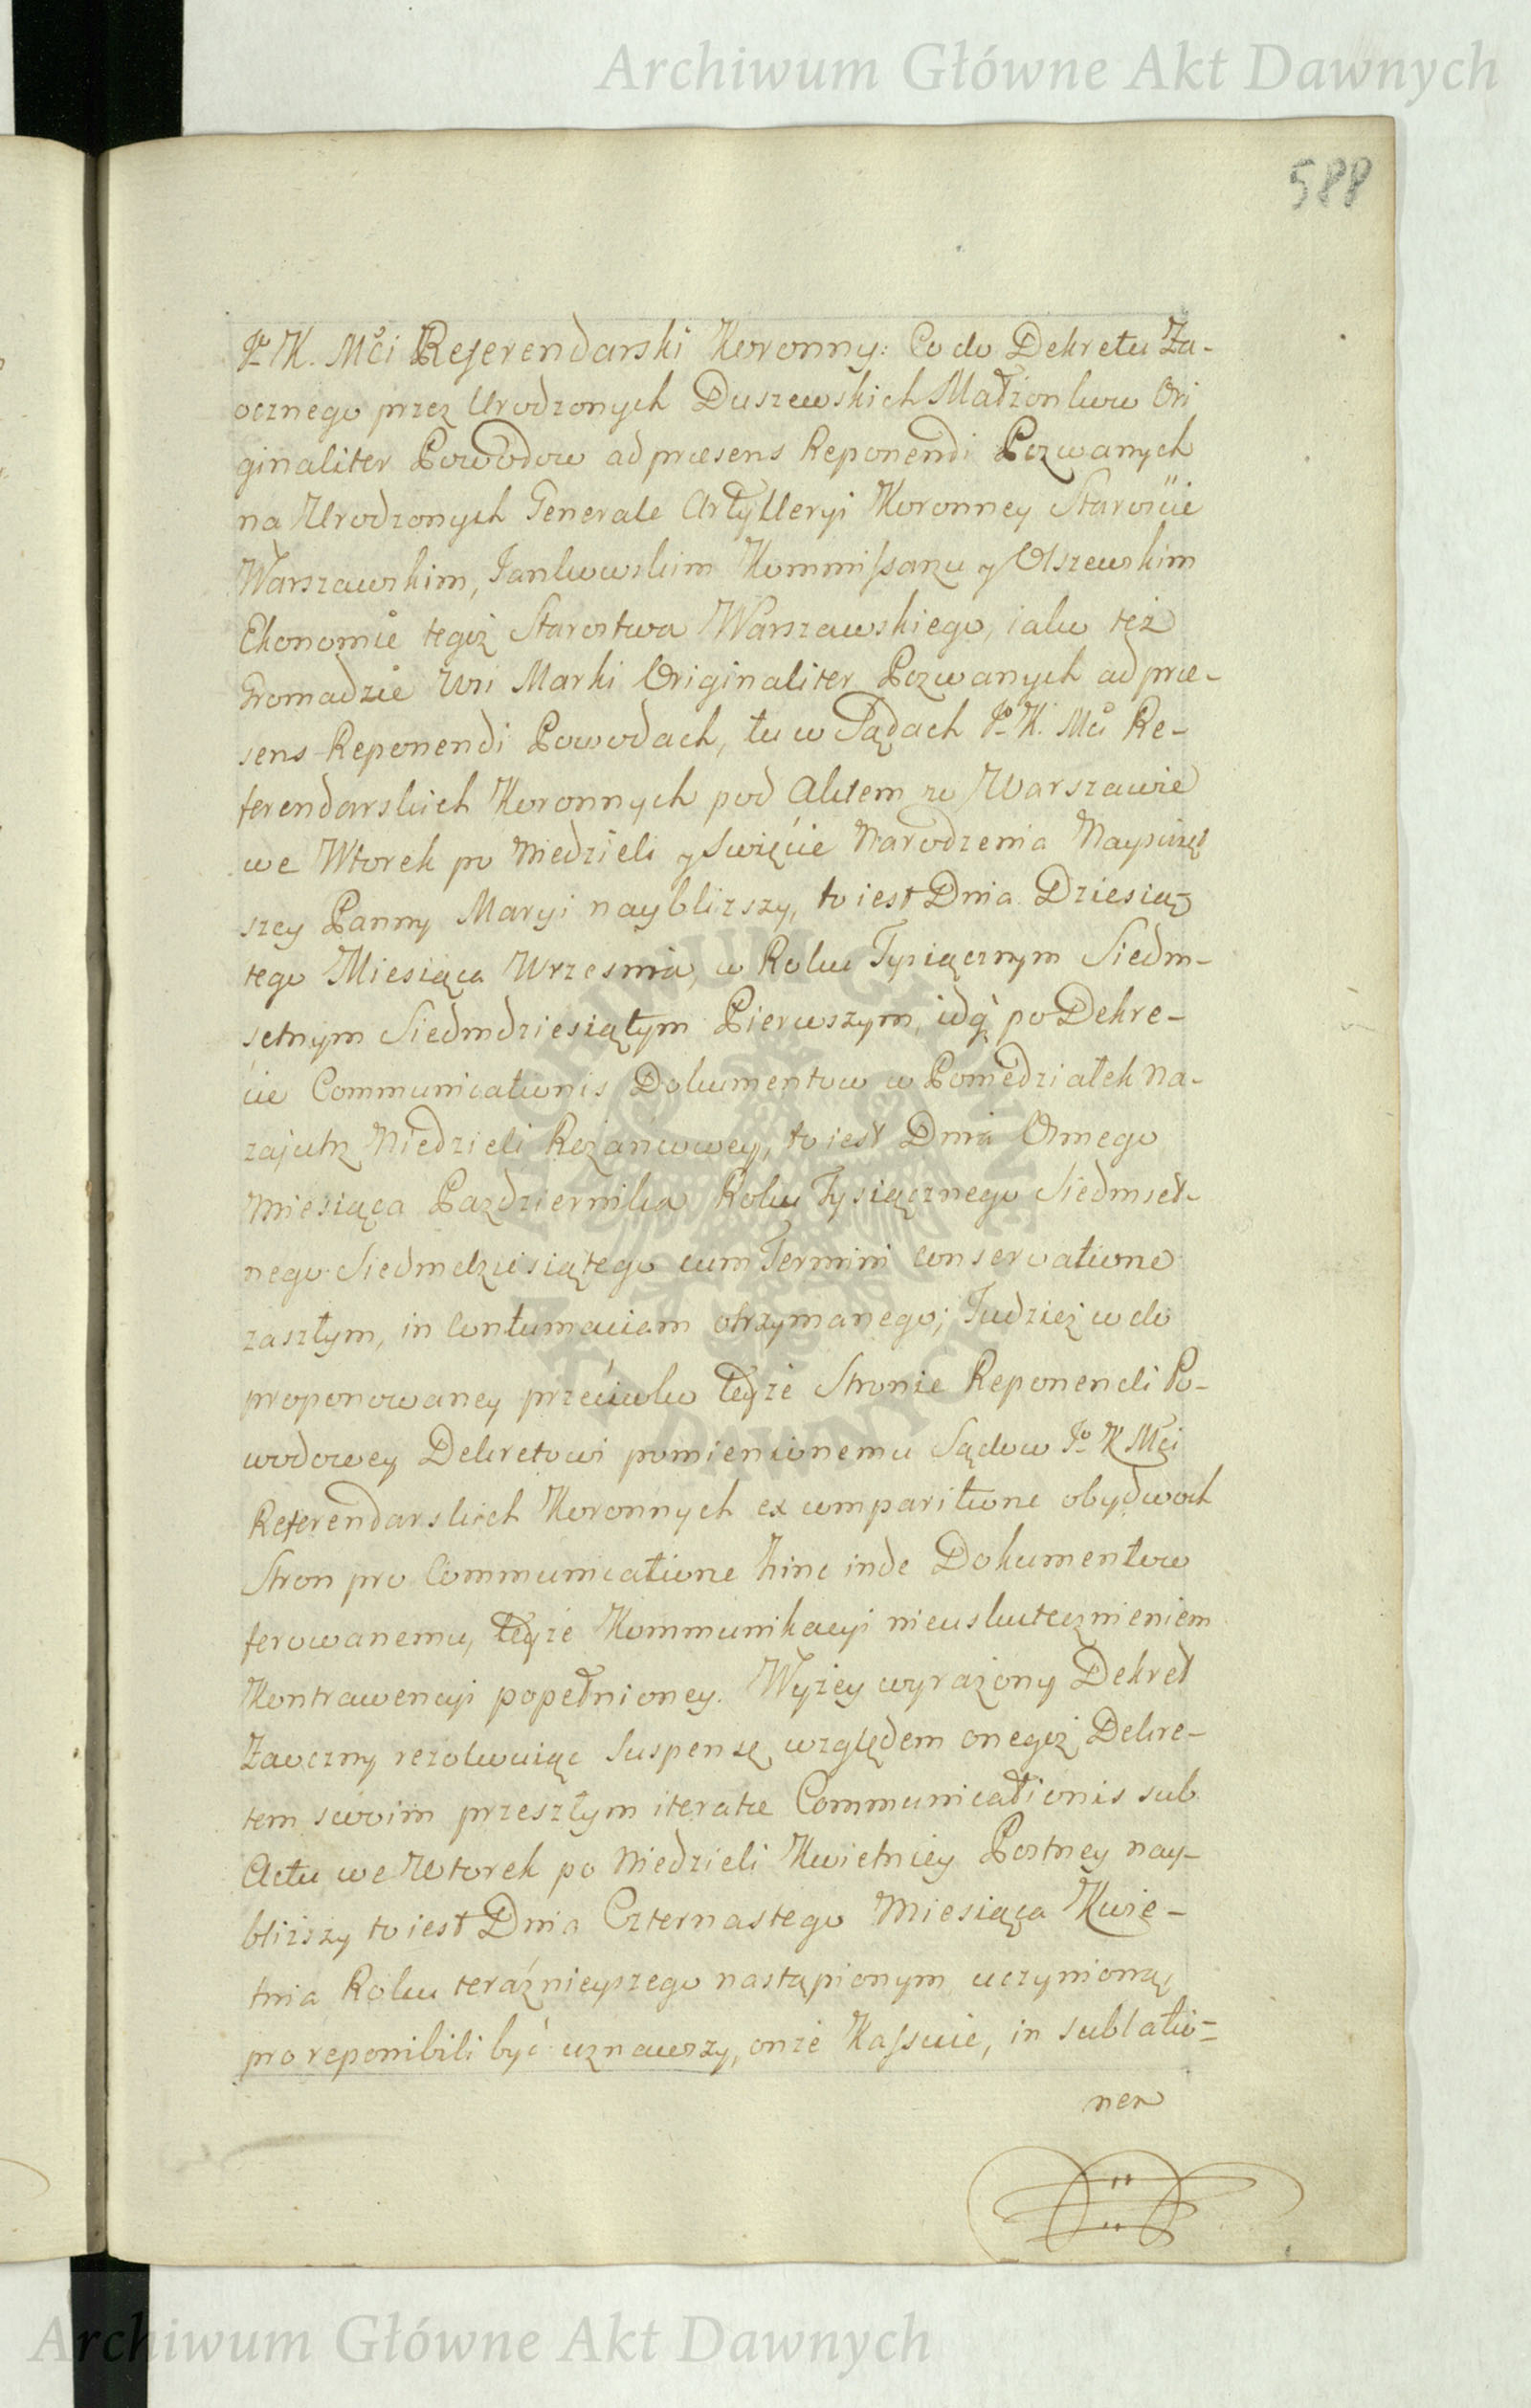 Archiwum Główne Akt Dawnych
588
Jo K. Mci Referendarski Koronny: Co do Dekretu Za-
ocznego przez Urodzonych Duszewskich Małżonkow Ori
ginaliter Powodow ad præsens Reponendi Pozwanych
na Urodzonych Generale Artylleryi Koronney Starościе
Warszawskim, Jankowskim Kommissarzu y Olszewskim
Ekonomie tegoż Starostwa Warszawskiego, iako też
Gromadzie Wsi Marki Originaliter Pozwanych ad præ-
sens Reponendi Powodach, tu w Sądach Jo K. Mci Re-
ferendarskich Koronnych pod Aktem w Warszawie
we Wtorek po Niedzieli y Swięcie Narodzenia Nayswięt
szey Panny Maryi naybliższy, to iest Dnia Dziesią-
tego Miesiąca Wrzesnia, w Roku Tysiącznym Siedm-
setnym Siedmdziesiątym Pierwszym, idąc po Dekre-
cie Communicationis Dokumentow w Poniedziałek na-
zajutrz Niedzieli Rożańcowey, to iest Dnia Osmego
Miesiąca Pazdziernika Roku Tysiącznego Siedmset-
nego Siedmdziesiątego cum Termini conservatione
zaszłym, in contumaciam otrzymanego; Tudzież w do
proponowaney przeciwko teyże Stronie Reponendi Po-
wodowey Dekretowi pomienionemu Sądow Jo K Mci
Referendarskich Koronnych ex comparitione obydwoch
Stron pro Communicatione hinc inde Dokumentow
ferowanemu, teyże Kommunikacyi nieuskutecznieniem
Kontrawencyi popełnioney. Wyżey wyrażony Dekret
Zaoczny rezolwuiąc Suspensę względem onegoż Dekre-
tem swoim przeszłym iteratæ Communicationis sub
Actu we Wtorek po Niedzieli Kwietniey Postney nay-
bliższy to iest Dnia Czternastego Miesiąca Kwie-
tnia Roku teraźnieyszego nastąpionym uczynioną
pro reponibili być uznawszy, onże Kassuie, in sublatio-
nem
ARCHIWUM GŁÓWNE AKT DAWNYCH
Archiwum Główne Akt Dawnych